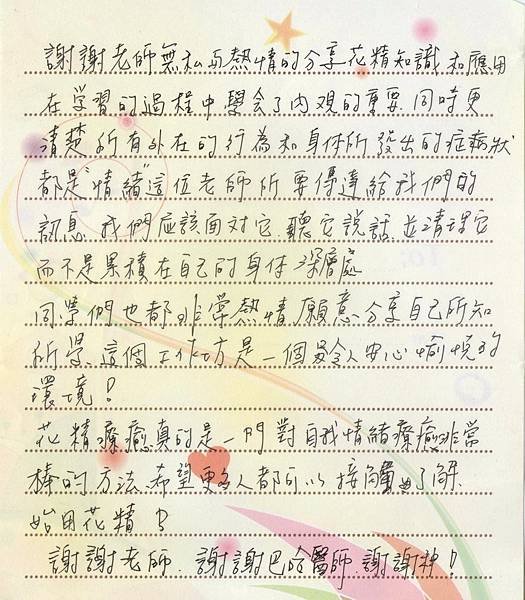 謝謝老師無私与熱情的分享花精知識和應用
在学習的過程中學會了內观的重要.同時更
清楚所有外在的行為和身体所發出的症病狀
都是"情緒"這位老師所要傳達給我們的
訊息.我們应該面对它.聽它說話.並清理它
而不是累積在自己的身体深層處
同學們也都非常熱情.願意分享自己所知
所學.這個工作坊是一個最令人安心愉悅的
環境!
花精療癒真的是一門對自我情緒療癒非常
棒的方法.希望更多人都可以接觸.了解.
始用花精!
謝謝老師.謝謝巴哈醫師.謝謝神!